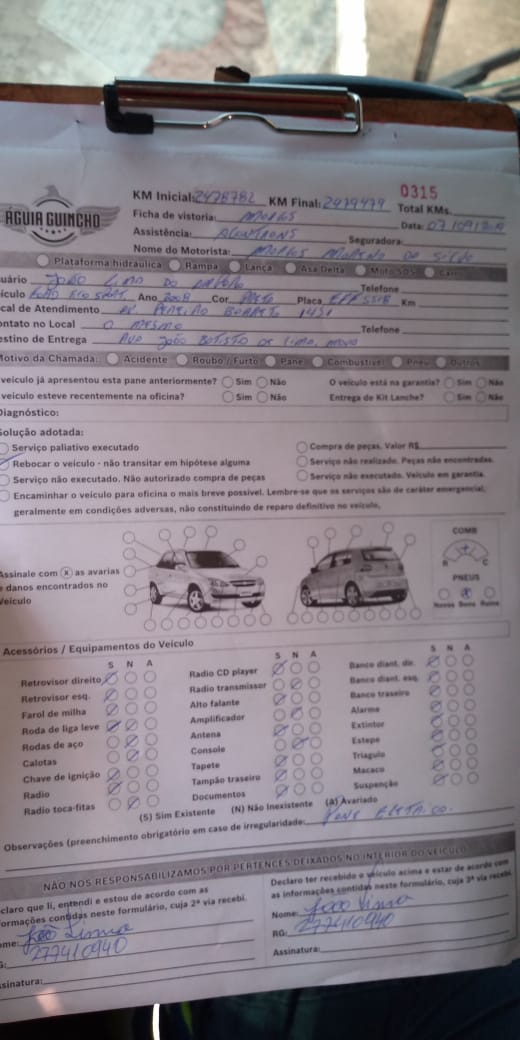 ÁGUIA GUINCHO
0315
KM Inicial: 2478782 KM Final: 2479479 Total KMs.
Ficha de vistoria: Data: 07/09/
Assistência: Seguradora:
Nome do Motorista:
Plataforma hidráulica Rampa Lança Asa Delta Moto SOS Carro
uário João Lima Telefone
ículo Ford Eco Sport Ano 2008 Cor Preto Placa Km
cal de Atendimento 1451
ontato no Local O mesmo Telefone
estino de Entrega João Batista de Lima,
Motivo da Chamada: Acidente Roubo / Furto Pane Combustível Pneu Outros
veículo já apresentou esta pane anteriormente? Sim Não O veículo está na garantia? Sim Não
veículo esteve recentemente na oficina? Sim Não Entrega de Kit Lanche? Sim Não
Diagnóstico:
Solução adotada:
Serviço paliativo executado Compra de peças. Valor R$
Rebocar o veículo - não transitar em hipótese alguma Serviço não realizado. Peças não encontradas.
Serviço não executado. Não autorizado compra de peças Serviço não executado. Veículo em garantia.
Encaminhar o veículo para oficina o mais breve possível. Lembre-se que os serviços são de caráter emergencial,
geralmente em condições adversas, não constituindo de reparo definitivo no veículo,
Assinale com X as avarias
e danos encontrados no
Veículo
COMB
R C
PNEUS
Novos Bons Ruins
Acessórios / Equipamentos do Veículo
S N A S N A S N A
Retrovisor direito Radio CD player Banco diant. dir.
Retrovisor esq. Radio transmissor Banco diant. esq.
Farol de milha Alto falante Banco traseiro
Roda de liga leve Amplificador Alarme
Rodas de aço Antena Extintor
Calotas Console Estepe
Chave de ignição Tapete Triagulo
Radio Tampão traseiro Macaco
Radio toca-fitas Documentos Suspenção
(S) Sim Existente (N) Não Inexistente (A) Avariado
Observações (preenchimento obrigatório em caso de irregularidade:
NÃO NOS RESPONSABILIZAMOS POR PERTENCES DEIXADOS NO INTERIOR DO VEÍCULO
claro que li, entendi e estou de acordo com as
formações contidas neste formulário, cuja 2ª via recebi.
ome: João Lima
G: 277410940
ssinatura:
Declaro ter recebido o veículo acima e estar de acordo com
as informações contidas neste formulário, cuja 2ª via recebi
Nome: João Lima
RG: 277410940
Assinatura: